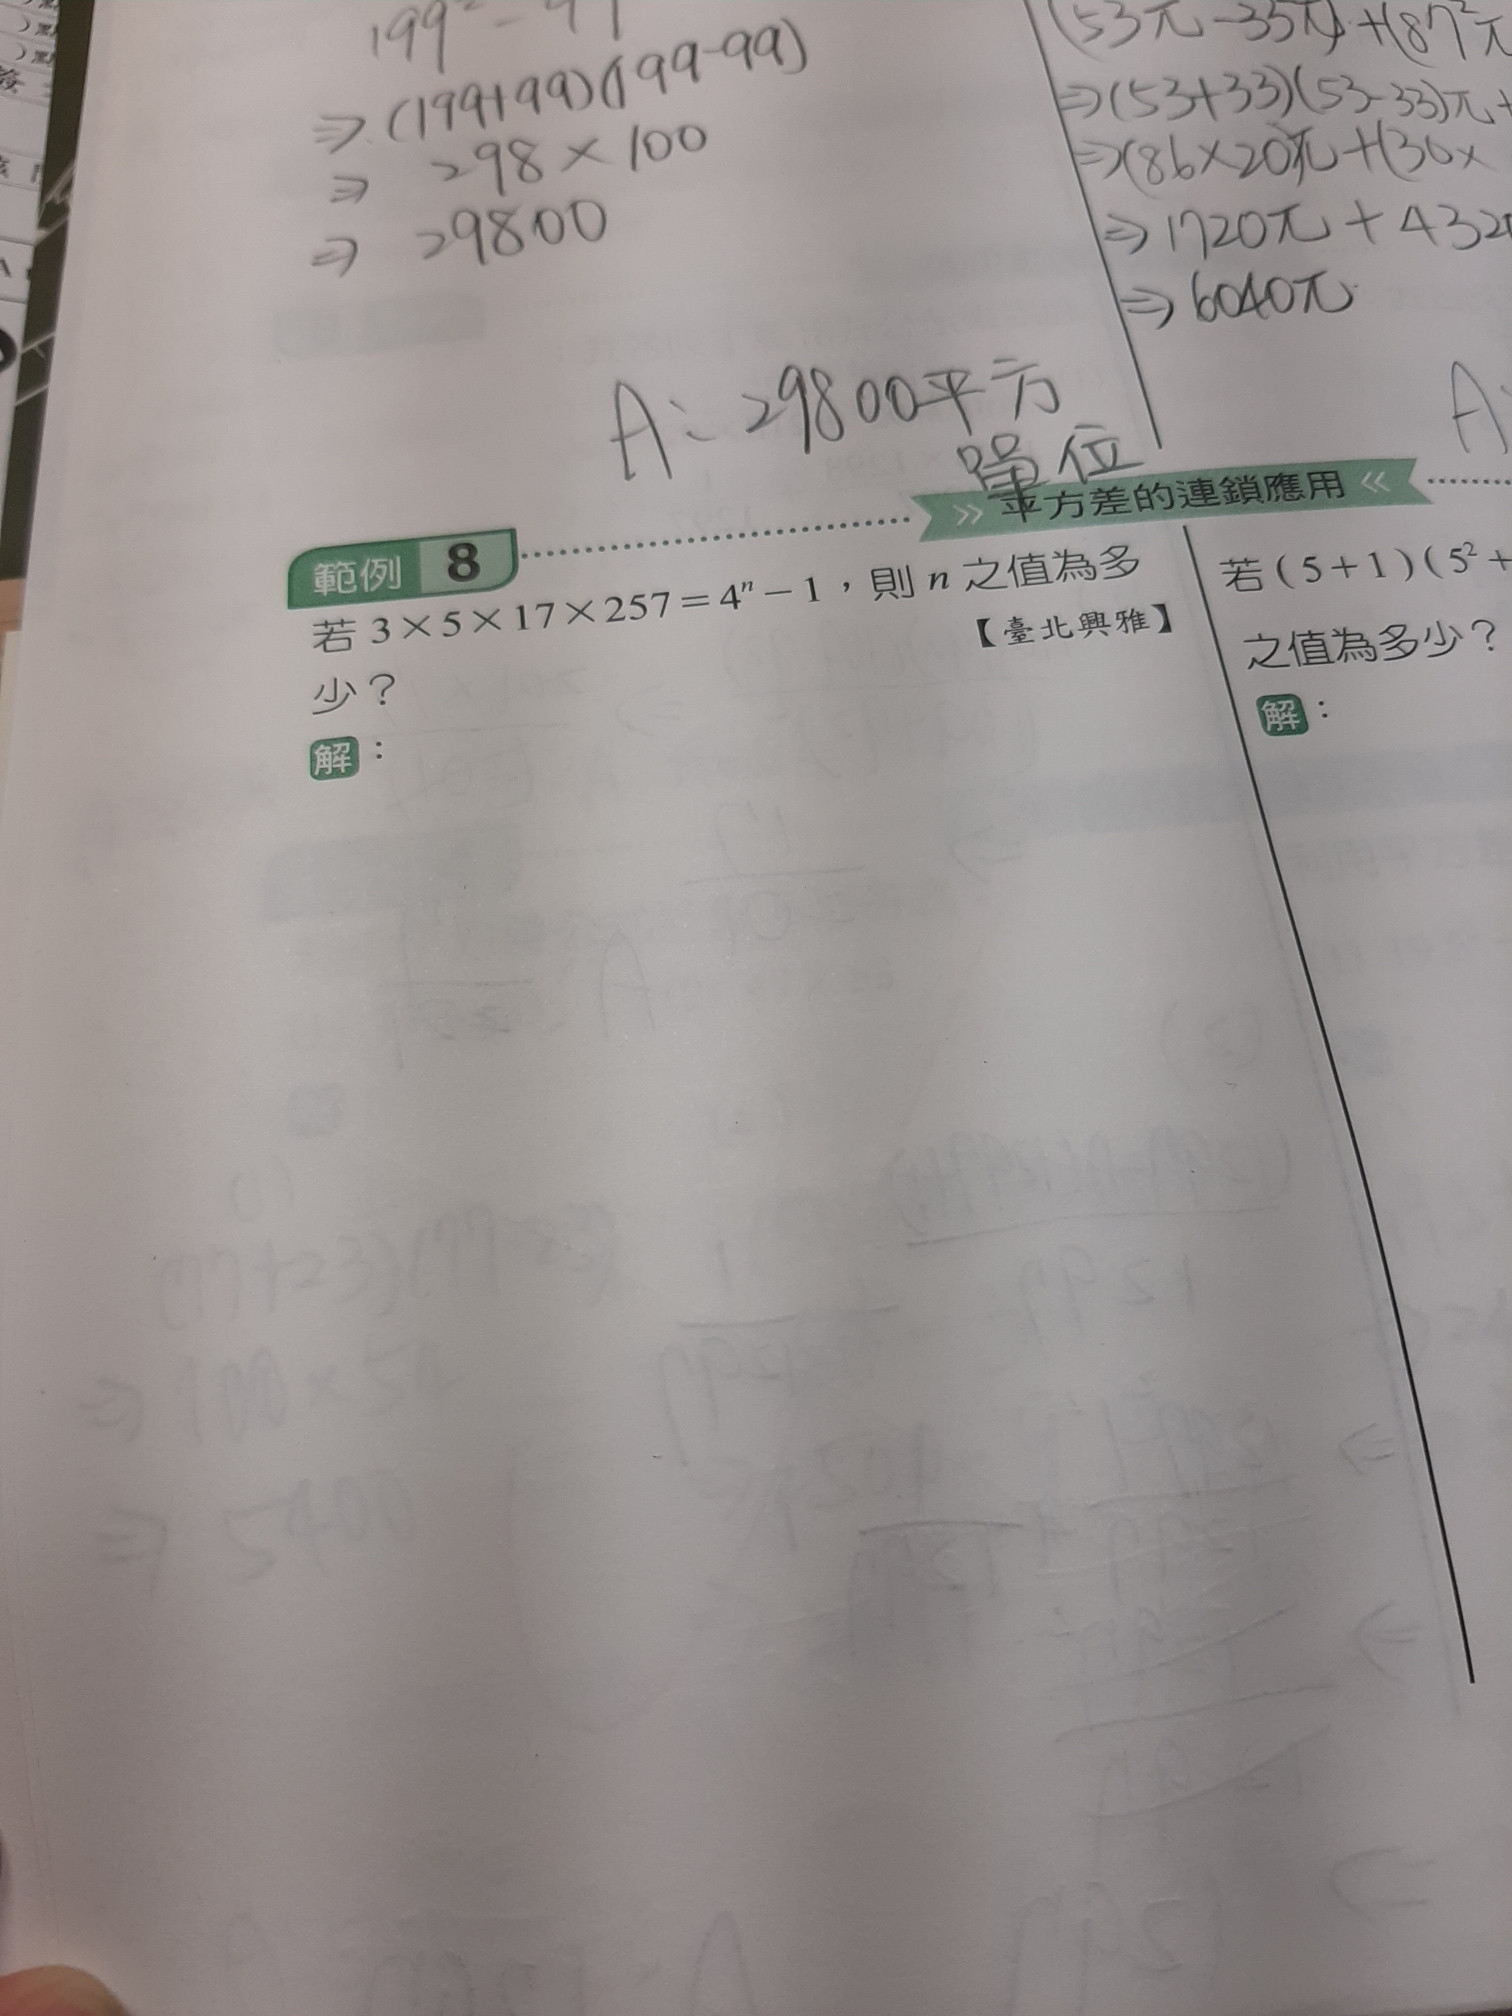 ⇒(199+99)(199-99)
⇒ 298×100
⇒ 29800
A:29800平方
單位
⇒(53+33)(53-33)π+
⇒(86×20)π+(30×
⇒1720π+432
⇒6040π
A:
平方差的連鎖應用
範例 8
若 3×5×17×257=4ⁿ-1,則 n 之值為多
少?
【臺北興雅】
解:
若(5+1)(5²+
之值為多少?
解: